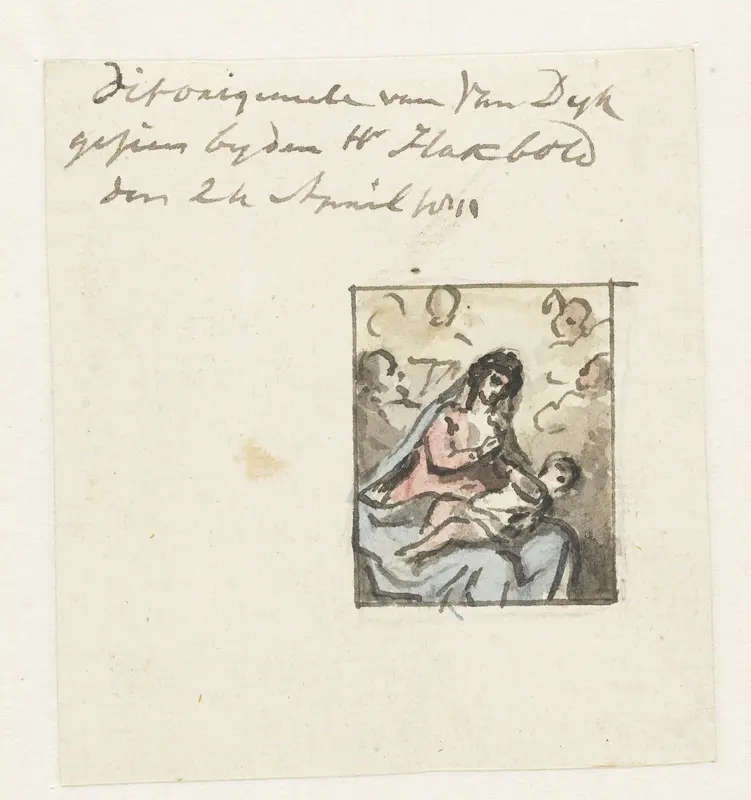 dit origineele van Van Dyk
gesien by den Hr Hakbold
den 24 April 1811